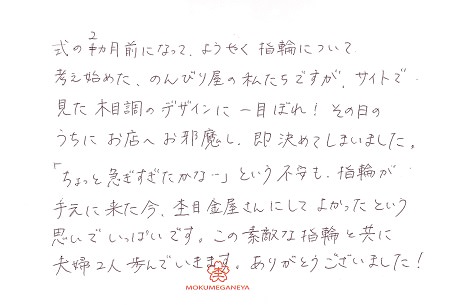 式の2カ月前になって、ようやく指輪について
考え始めた、のんびり屋の私たちですが、サイトで
見た木目調のデザインに一目ぼれ！その日の
うちにお店へお邪魔し、即決めてしまいました。
「ちょっと急ぎすぎたかなー」という不安も、指輪が
手元に来た今、杢目金屋さんにしてよかったという
思いでいっぱいです。この素敵な指輪と共に
夫婦2人歩んでいきます。ありがとうございました！
MOKUMEGANEYA